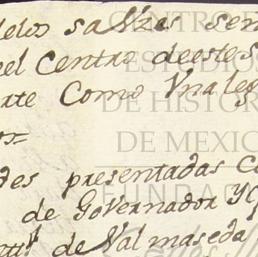 delos salvas sen
el Centro deeste s
ate Como Vna leg
des presentadas C
de Governador y C
de Valmaseda
CENTRO
ESTUDIOS
DE HISTOR
DE MEXIC
FUNDA